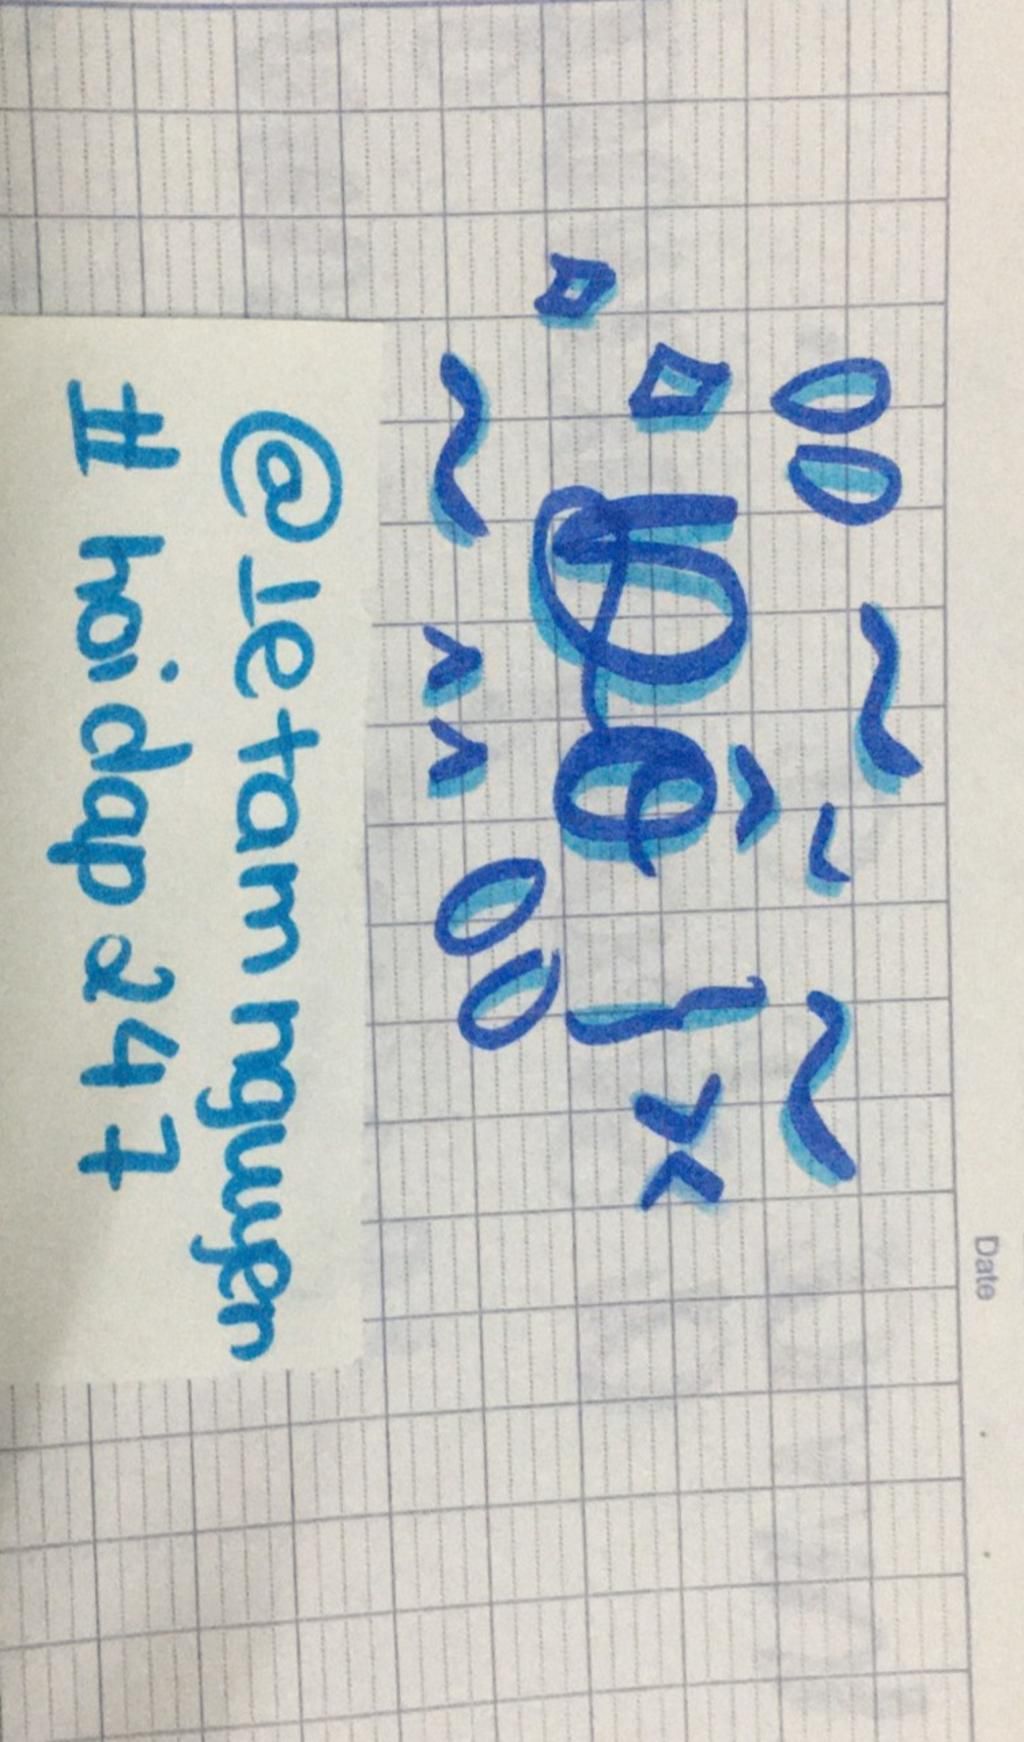 Date
Dế
@letamnguyen
# hoidap 247